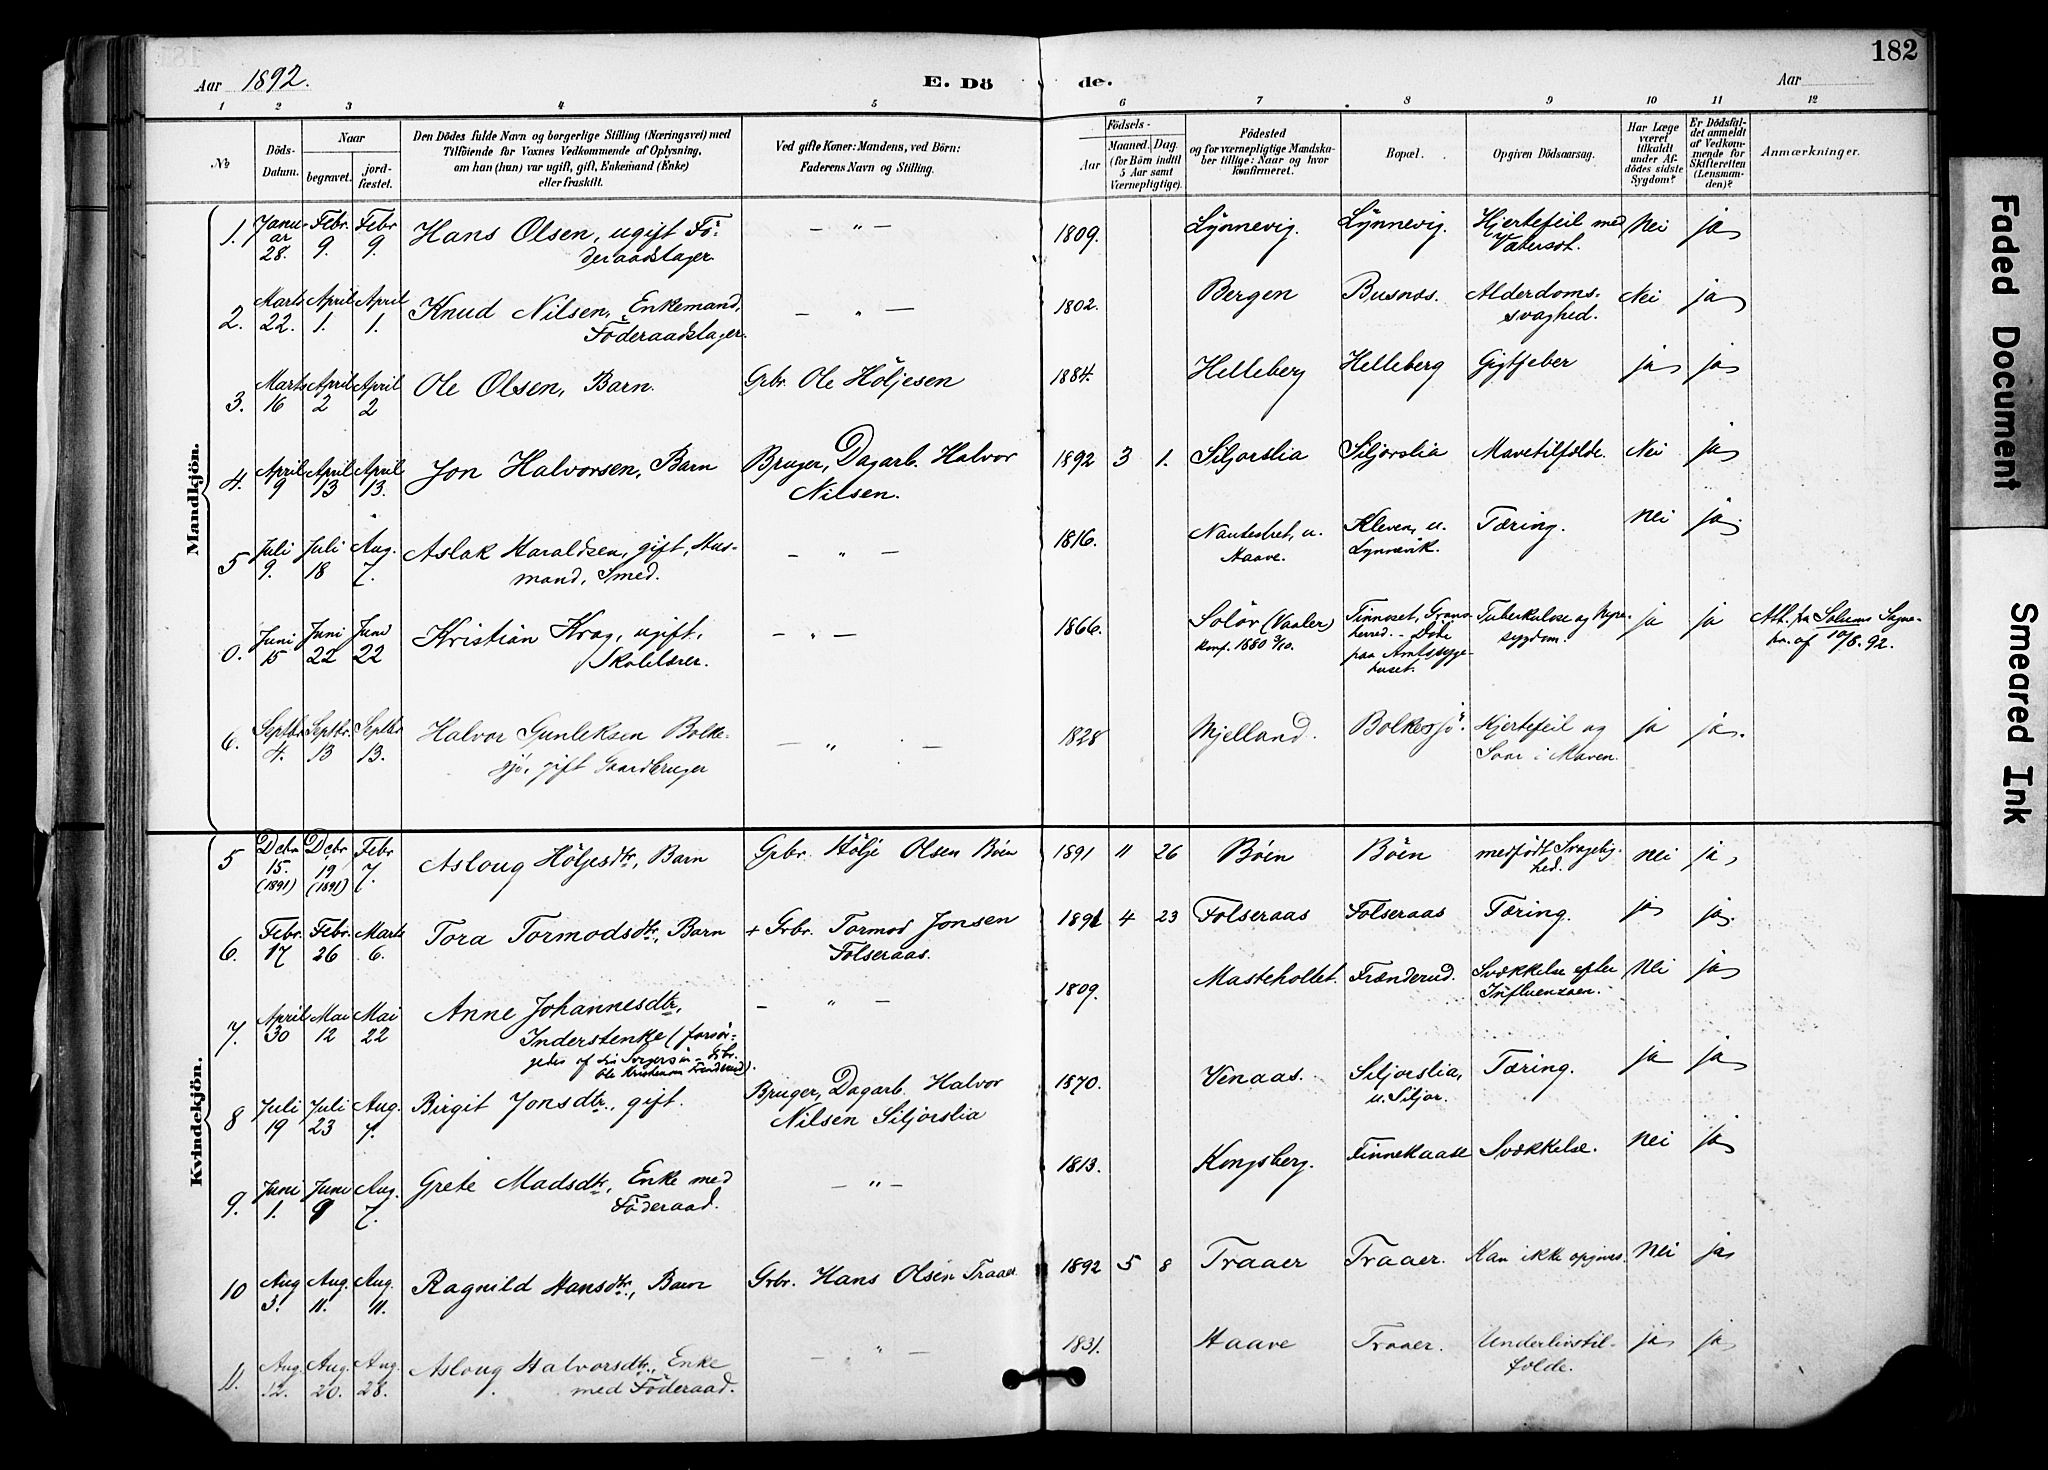 182
Aar 1892. E. Dö de. Aar
1 2 3 4 5 6 7 8 9 10 11 12
№
Döds-Datum.
Naar
begravet. jord-fæstet.
Den Dödes fulde Navn og borgerlige Stilling (Næringsvei) med
Tilföiende for Voxnes Vedkommende af Oplysning,
om han (hun) var ugift, gift, Enkemand (Enke)
eller fraskilt.
Ved gifte Koner: Mandens, ved Börn:
Faderens Navn og Stilling.
Födsels-
Aar Maaned. Dag.
(for Börn indtil
5 Aar samt
Værnepligtige).
Födested
og for værnepligtige Mandska-
ber tillige: Naar og hvor
konfirmeret.
Bopæl.
Opgiven Dödsaarsag.
Har Læge
været
tilkaldt
under Af-
dödes sidste
Sygdom?
Er Dödsfal-
det anmeldt
af Vedkom-
mende for
Skifteretten
(Lensman-
den)?
Anmærkninger.
Mandkjön.
1. Januar 28. Febr. 9. Febr 9. Hans Olsen, ugift Föderaadstager. — " — 1809. Lynnevig. Lynnevig. Hjertefeil med Vatersot. Nei ja
2. Marts 22. April 1. April 1. Knud Nilsen, Enkemand, Föderaadstager. — " — 1802. Bergen Busnes. Alderdomssvaghed. Nei ja
3. Marts 16 April 2 April 2 Ole Olsen, Barn. Grbr. Ole Höljesen 1884. Helleberg Helleberg Gigtfeber ja ja
4. April 9 April 13 April 13. Jon Halvorsen, Barn Bruger, Dagarb. Halvor Nilsen. 1892 3 1. Siljorslia Siljorslia Mavetilfælde. Nei ja
5 Juli 9. Juli 18 Aug. 7. Aslak Haraldsen, gift, Husmand, Smed. — " — 1816. u. Haave. Kleven, u. Lynnevik. Tæring. nei ja.
0. Juni 15 Juni 22 Juni 22 Kristian Krag, ugift, Skolelærer. — " — 1866. Solör (Vaaler) konf. 1880 3/10. Tinnoset, Gransherred. - Döde paa Amtssygehuset. Tuberkulose og Nyresygdom. ja ja Att. fra Solums Sognepr. af 10/8. 92.
6. Septbr 4. Septbr. 13 Septbr 13. Halvor Gunleksen Bolkesjö, gift Gaardbruger — " — 1828 Mjelland. Bolkesjö. Hjertefeil og Saar i Maven. ja ja.
Kvindekjön.
5 Debr 15. (1891) Debr 19 (1891) Febr 7. Aslaug Höljesdtr., Barn Grbr. Hölje Olsen Böen 1891 11 26 Böen Böen medfödt Svagelighed. nei ja
6. Febr. 17 Febr. 26 Marts 6. Tora Tormodsdtr., Barn + Grbr. Tormod Jonsen Folseraas. 1891 4 23 Folseraas Folseraas Tæring. ja ja.
7. April 30 Mai 12 Mai 22 Anne Johannesdtr., Inderstenke (forsörgedes af sin Svigersön - Grbr. Ole Kristensen Frænderud). — " — 1809. Masteholtet. Frænderud. Svækkelse efter Influenzaen. Nei ja
8 Juli 19 Juli 23 Aug. 7. Birgit Jonsdtr., gift. Bruger, Dagarb. Halvor Nilsen Siljorslia 1870. Venaas. Siljorslia, u. Siljor. Tæring. ja ja
9. Juni 1. Juni 9 Aug. 7. Grete Madsdtr., Enke med Föderaad. — " — 1813. Kongsberg. Finnekaase Svækkelse. nei ja
10 Aug 3. Aug. 11. Aug. 11. Ragnild Hansdtr., Barn Grbr. Hans Olsen Traaer 1892 5 8 Traaer Traaer. Kan ikke opgives. Nei ja
11. Aug. 12. Aug. 20. Aug. 28. Aslaug Halvorsdtr., Enke med Föderaad. — " — 1831. Haave Traaer. Underlivstilfælde. ja ja
Faded Document
Smeared Ink